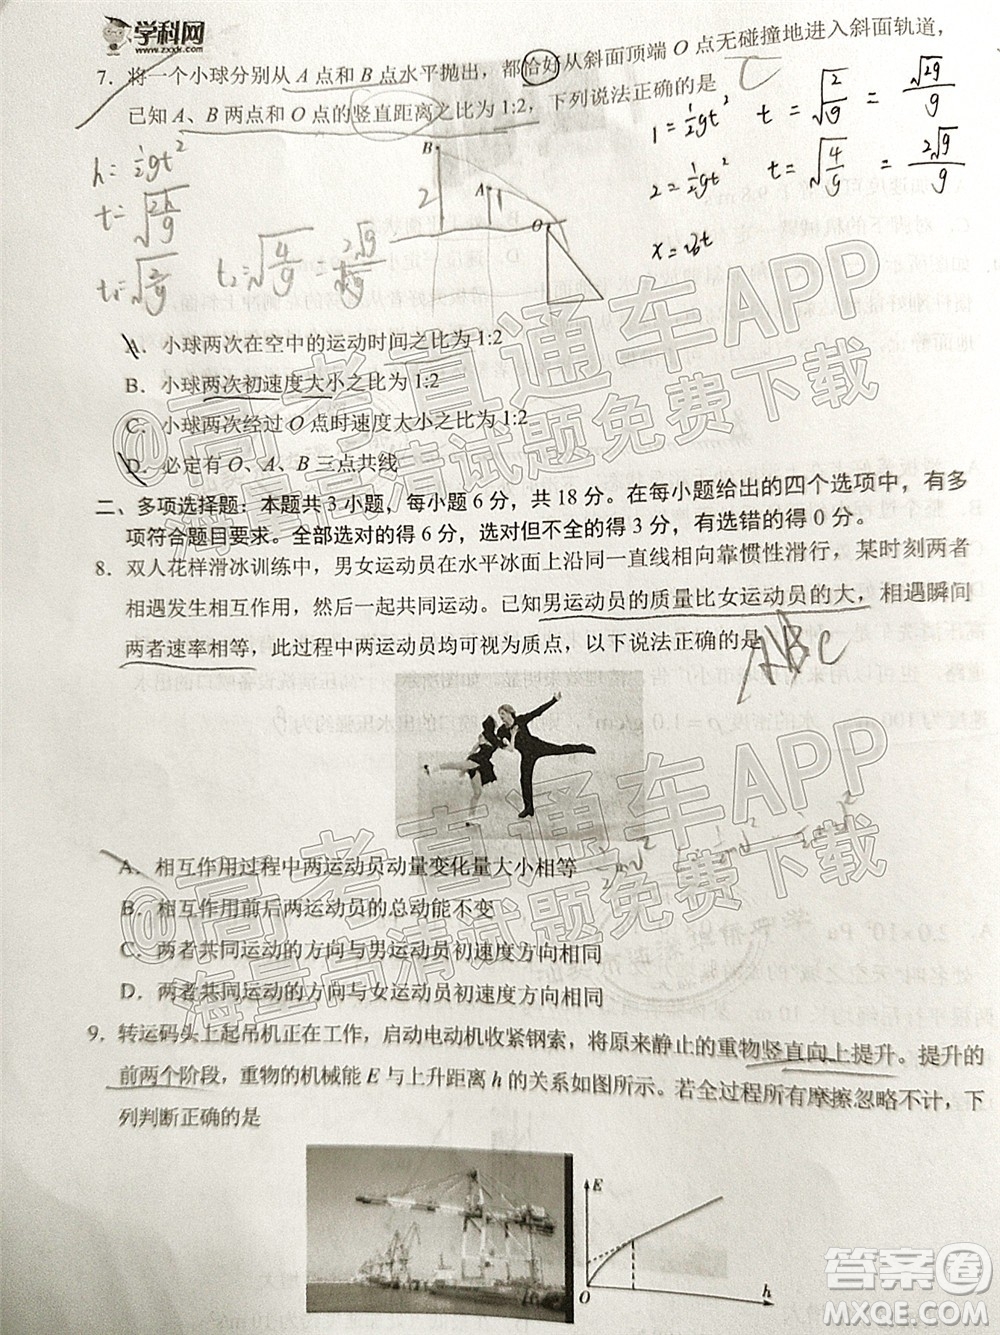 学科网
www.zxxk.com
7．将一个小球分别从 A 点和 B 点水平抛出，都恰好从斜面顶端 O 点无碰撞地进入斜面轨道，
已知 A、B 两点和 O 点的竖直距离之比为 1:2，下列说法正确的是
h = ½gt²
t = √(2h/g)
1 = ½gt² t = √(2/g) = √2g/g
2 = ½gt² t = √(4/g) = 2√g/g
B
2
A
1
O
A．小球两次在空中的运动时间之比为 1:2
B．小球两次初速度大小之比为 1:2
C．小球两次经过 O 点时速度大小之比为 1:2
D．必定有 O、A、B 三点共线
二、多项选择题：本题共 3 小题，每小题 6 分，共 18 分。在每小题给出的四个选项中，有多
项符合题目要求。全部选对的得 6 分，选对但不全的得 3 分，有选错的得 0 分。
8．双人花样滑冰训练中，男女运动员在水平冰面上沿同一直线相向靠惯性滑行，某时刻两者
相遇发生相互作用，然后一起共同运动。已知男运动员的质量比女运动员的大，相遇瞬间
两者速率相等，此过程中两运动员均可视为质点，以下说法正确的是
ABC
A．相互作用过程中两运动员动量变化量大小相等
B．相互作用前后两运动员的总动能不变
C．两者共同运动的方向与男运动员初速度方向相同
D．两者共同运动的方向与女运动员初速度方向相同
9．转运码头上起吊机正在工作，启动电动机收紧钢索，将原来静止的重物竖直向上提升。提升的
前两个阶段，重物的机械能 E 与上升距离 h 的关系如图所示。若全过程所有摩擦忽略不计，下
列判断正确的是
E
h
@高考直通车APP
海量高清试题免费下载
@高考直通车APP
海量高清试题免费下载
答案圈
MXQE.COM